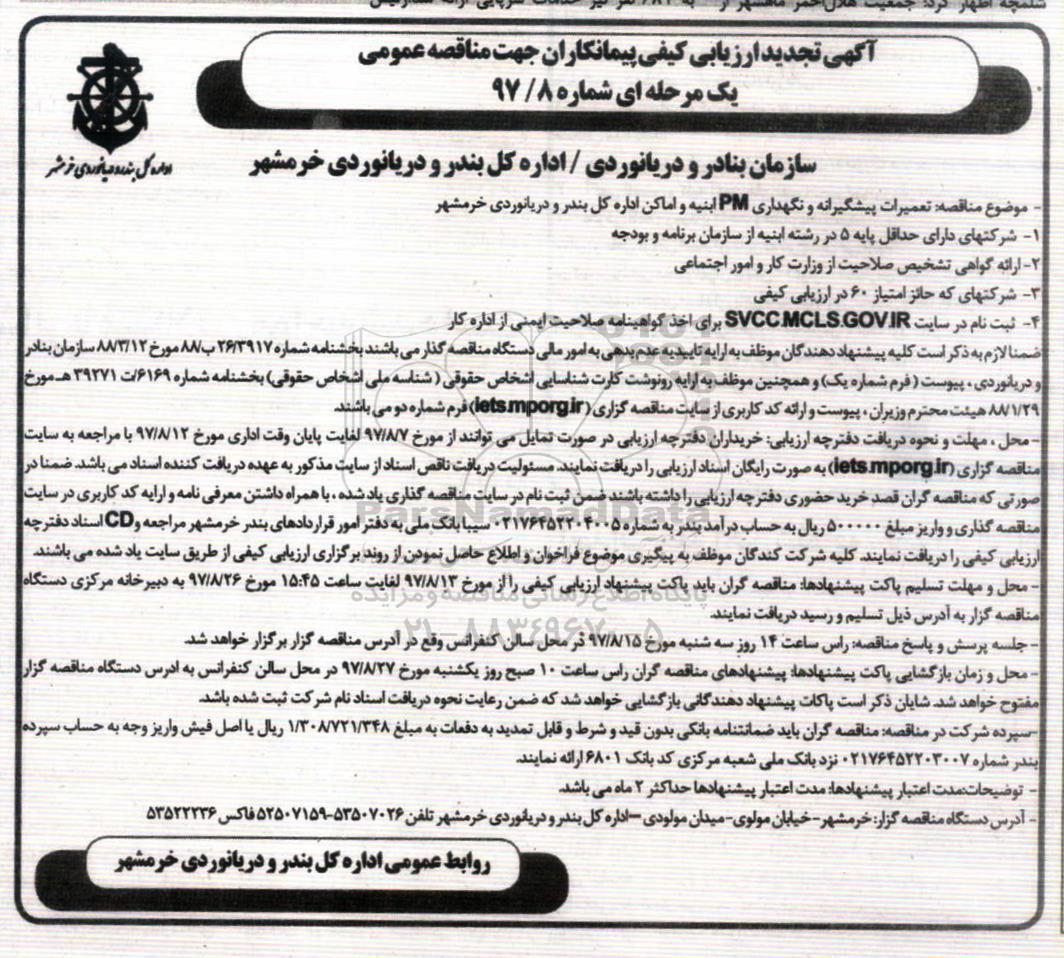 شلمچه اظهار کرد: جمعیت هلال‌احمر ماهشهر از
آگهی تجدید ارزیابی کیفی پیمانکاران جهت مناقصه عمومی
یک مرحله ای شماره ۹۷/۸
اداره کل بندر و دریانوردی خرمشهر
سازمان بنادر و دریانوردی / اداره کل بندر و دریانوردی خرمشهر
- موضوع مناقصه: تعمیرات پیشگیرانه و نگهداری PM ابنیه و اماکن اداره کل بندر و دریانوردی خرمشهر
۱- شرکتهای دارای حداقل پایه ۵ در رشته ابنیه از سازمان برنامه و بودجه
۲- ارائه گواهی تشخیص صلاحیت از وزارت کار و امور اجتماعی
۳- شرکتهای که حائز امتیاز ۶۰ در ارزیابی کیفی
۴- ثبت نام در سایت SVCC.MCLS.GOV.IR برای اخذ گواهینامه صلاحیت ایمنی از اداره کار
ضمنا لازم به ذکر است کلیه پیشنهاد دهندگان موظف به ارایه تاییدیه عدم بدهی به امور مالی دستگاه مناقصه گذار می باشند بخشنامه شماره ۲۶/۳۹۱۷ ب/۸۸ مورخ ۸۸/۳/۱۲ سازمان بنادر
و دریانوردی ، پیوست ( فرم شماره یک) و همچنین موظف به ارایه رونوشت کارت شناسایی اشخاص حقوقی ( شناسه ملی اشخاص حقوقی) بخشنامه شماره ۶۱۶۹/ت ۳۹۲۷۱ هـ مورخ
۸۸/۱/۲۹ هیئت محترم وزیران ، پیوست و ارائه کد کاربری از سایت مناقصه گزاری (iets.mporg.ir) فرم شماره دو می باشند.
- محل ، مهلت و نحوه دریافت دفترچه ارزیابی: خریداران دفترچه ارزیابی در صورت تمایل می توانند از مورخ ۹۷/۸/۷ لغایت پایان وقت اداری مورخ ۹۷/۸/۱۲ با مراجعه به سایت
مناقصه گزاری (iets.mporg.ir) به صورت رایگان اسناد ارزیابی را دریافت نمایند. مسئولیت دریافت ناقص اسناد از سایت مذکور به عهده دریافت کننده اسناد می باشد. ضمنا در
صورتی که مناقصه گران قصد خرید حضوری دفترچه ارزیابی را داشته باشند ضمن ثبت نام در سایت مناقصه گذاری یاد شده ، با همراه داشتن معرفی نامه و ارایه کد کاربری در سایت
مناقصه گذاری و واریز مبلغ ۵۰۰۰۰۰ ریال به حساب درآمد بندر به شماره ۰۲۱۷۶۴۵۲۲۰۴۰۰۵ سیبا بانک ملی به دفتر امور قراردادهای بندر خرمشهر مراجعه و CD اسناد دفترچه
ارزیابی کیفی را دریافت نمایند. کلیه شرکت کنندگان موظف به پیگیری موضوع فراخوان و اطلاع حاصل نمودن از روند برگزاری ارزیابی کیفی از طریق سایت یاد شده می باشند.
- محل و مهلت تسلیم پاکت پیشنهادها: مناقصه گران باید پاکت پیشنهاد ارزیابی کیفی را از مورخ ۹۷/۸/۱۳ لغایت ساعت ۱۵:۴۵ مورخ ۹۷/۸/۲۶ به دبیرخانه مرکزی دستگاه
مناقصه گزار به آدرس ذیل تسلیم و رسید دریافت نمایند.
- جلسه پرسش و پاسخ مناقصه: راس ساعت ۱۴ روز سه شنبه مورخ ۹۷/۸/۱۵ در محل سالن کنفرانس وقع در آدرس مناقصه گزار برگزار خواهد شد.
- محل و زمان بازگشایی پاکت پیشنهادها: پیشنهادهای مناقصه گران راس ساعت ۱۰ صبح روز یکشنبه مورخ ۹۷/۸/۲۷ در محل سالن کنفرانس به ادرس دستگاه مناقصه گزار
مفتوح خواهد شد. شایان ذکر است پاکات پیشنهاد دهندگانی بازگشایی خواهد شد که ضمن رعایت نحوه دریافت اسناد نام شرکت ثبت شده باشد.
-سپرده شرکت در مناقصه: مناقصه گران باید ضمانتنامه بانکی بدون قید و شرط و قابل تمدید به دفعات به مبلغ ۱/۳۰۸/۷۲۱/۳۴۸ ریال یا اصل فیش واریز وجه به حساب سپرده
بندر شماره ۰۲۱۷۶۴۵۲۲۰۳۰۰۷ نزد بانک ملی شعبه مرکزی کد بانک ۶۸۰۱ ارائه نمایند.
- توضیحات:مدت اعتبار پیشنهادها: مدت اعتبار پیشنهادها حداکثر ۲ ماه می باشد.
- آدرس دستگاه مناقصه گزار: خرمشهر- خیابان مولوی- میدان مولودی –اداره کل بندر و دریانوردی خرمشهر تلفن ۵۳۵۰۷۰۲۶-۵۲۵۰۷۱۵۹ فاکس ۵۳۵۲۲۲۳۶
روابط عمومی اداره کل بندر و دریانوردی خرمشهر
ParsNamadData
پایگاه اطلاع رسانی مناقصه و مزایده
۰۲۱-۸۸۳۴۹۶۷۰-۵